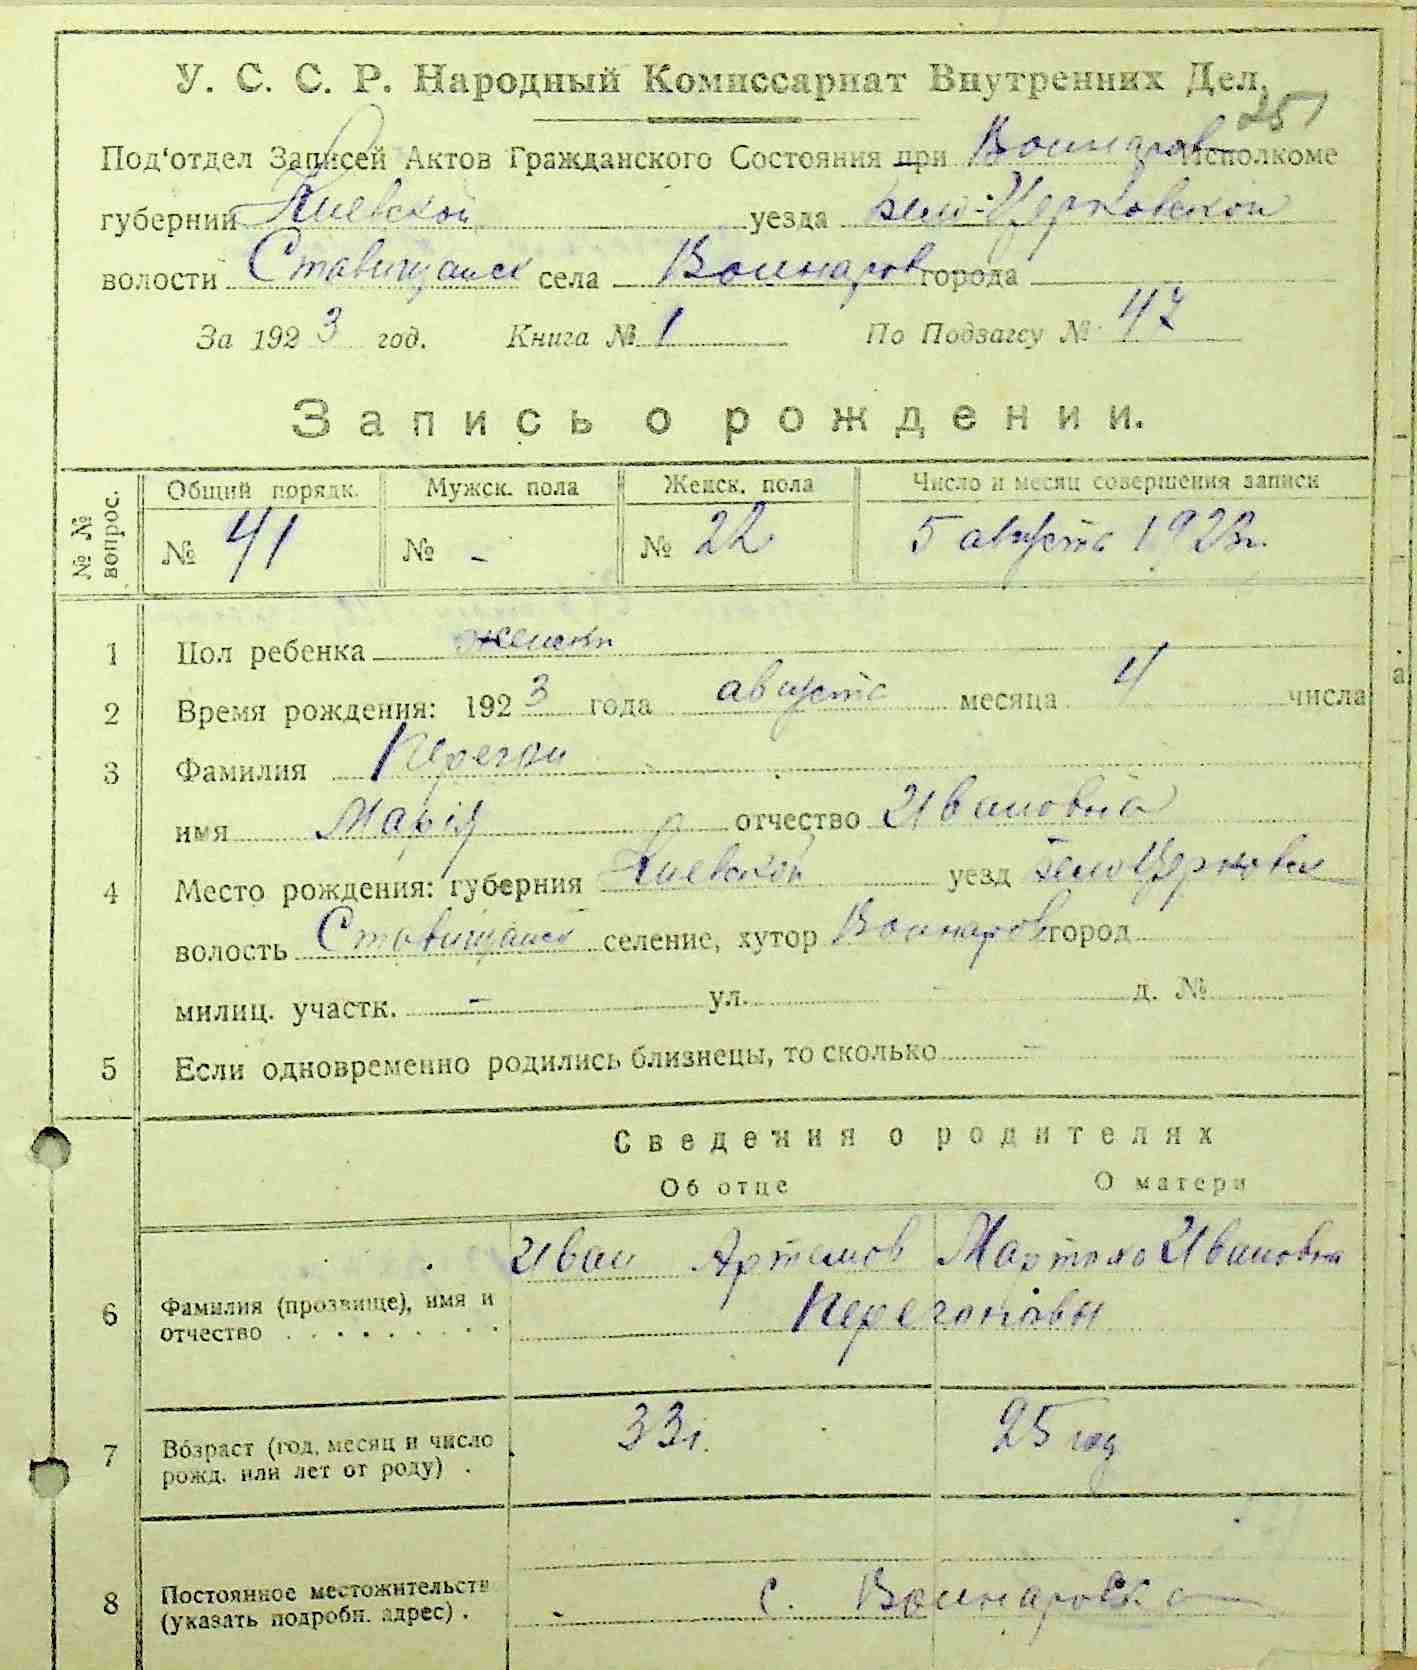 У. С. С. Р. Народный Комиссариат Внутренних Дел.
251
Под'отдел Записей Актов Гражданского Состояния при Воинаров Исполкоме
губернии Киевской уезда Бело-Церковской
волости Ставищанск села Воинаров города
За 1923 год. Книга № 1 По Подзагсу № 47
Запись о рождении.
№ № вопрос. Общий порядк. Мужск. пола Женск. пола Число и месяц совершения записи
№ 41 № - № 22 5 августа 1923г.
1 Пол ребенка женск
2 Время рождения: 1923 года августа месяца 4 числа
3 Фамилия Перегон
имя Марія отчество Ивановна
4 Место рождения: губерния Киевской уезд БелоЦерковск
волость Ставищанск селение, хутор Воинаров город
милиц. участк. - ул. д. №
5 Если одновременно родились близнецы, то сколько -
Сведения о родителях
Об отце О матери
Иван Артемов Ивановна
6 Фамилия (прозвище), имя и
отчество Перегоновы
7 Возраст (год, месяц и число
рожд. или лет от роду) . 33г. 25 год
8 Постоянное местожительств
(указать подробн. адрес) . с. Воинаровка